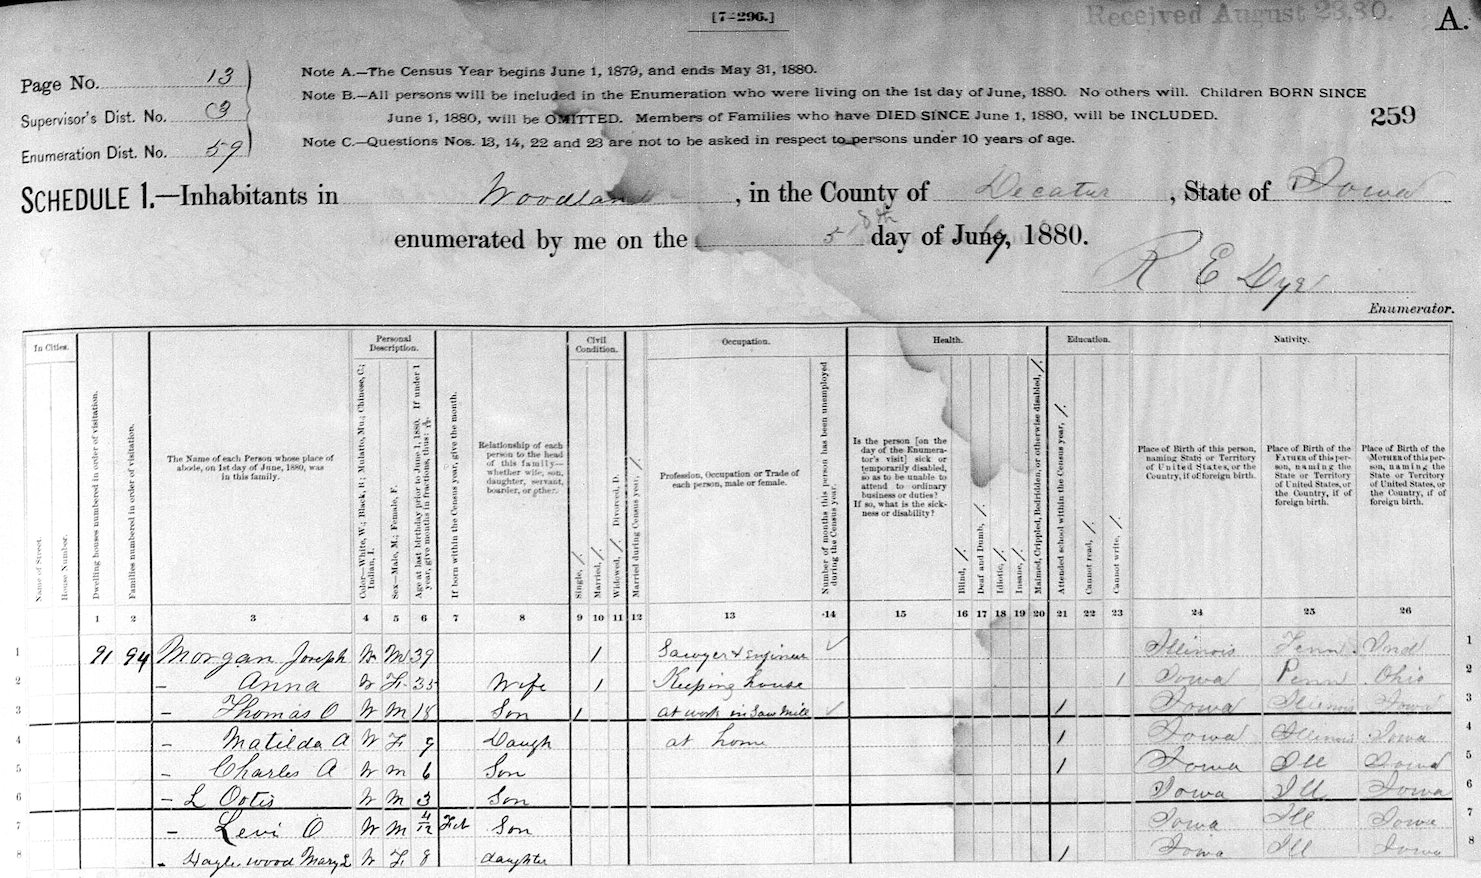 [7-296.]
Received August 23.80.
A.
Page No. 13
Supervisor's Dist. No. 3
Enumeration Dist. No. 59
Note A.—The Census Year begins June 1, 1879, and ends May 31, 1880.
Note B.—All persons will be included in the Enumeration who were living on the 1st day of June, 1880. No others will. Children BORN SINCE
June 1, 1880, will be OMITTED. Members of Families who have DIED SINCE June 1, 1880, will be INCLUDED.
Note C.—Questions Nos. 13, 14, 22 and 23 are not to be asked in respect to persons under 10 years of age.
259
SCHEDULE 1.—Inhabitants in Woodland, in the County of Decatur, State of Iowa
enumerated by me on the 5 8th day of June, 1880.
R E Dye
Enumerator.
In Cities.
Name of Street.
House Number.
Dwelling houses numbered in order of visitation.
Families numbered in order of visitation.
The Name of each Person whose place of
abode, on 1st day of June, 1880, was
in this family.
Personal
Description.
Color—White, W.; Black, B.; Mulatto, Mu.; Chinese, C.;
Indian, I.
Sex—Male, M.; Female, F.
Age at last birthday prior to June 1, 1880. If under 1
year, give months in fractions, thus: 3/12
If born within the Census year, give the month.
Relationship of each
person to the head
of this family—
whether wife, son,
daughter, servant,
boarder, or other.
Civil
Condition.
Single, /.
Married, /.
Widowed, /. Divorced, D.
Married during Census year, /.
Occupation.
Profession, Occupation or Trade of
each person, male or female.
Number of months this person has been unemployed
during the Census year.
Health.
Is the person [on the
day of the Enumera-
tor's visit] sick or
temporarily disabled,
so as to be unable to
attend to ordinary
business or duties?
If so, what is the sick-
ness or disability?
Blind, /.
Deaf and Dumb, /.
Idiotic, /.
Insane, /.
Maimed, Crippled, Bedridden, or otherwise disabled, /.
Education.
Attended school within the Census year, /.
Cannot read, /.
Cannot write, /.
Nativity.
Place of Birth of this person,
naming State or Territory
of United States, or the
Country, if of foreign birth.
Place of Birth of the
FATHER of this per-
son, naming the
State or Territory
of United States, or
the Country, if of
foreign birth.
Place of Birth of the
MOTHER of this per-
son, naming the
State or Territory of
United States, or
the Country, if of
foreign birth.
1 2 3 4 5 6 7 8 9 10 11 12 13 14 15 16 17 18 19 20 21 22 23 24 25 26
1 91 94 Morgan Joseph W M 39 1 Sawyer & Engineer ✓ Illinois Tenn. Ind 1
2 — Anna W F 35 Wife 1 Keeping house 1 Iowa Penn Ohio 2
3 — Thomas O W M 18 Son 1 at work in Saw Mill ✓ 1 Iowa Illinois Iowa 3
4 — Matilda A W F 9 Daugh at home 1 Iowa Illinois Iowa 4
5 — Charles A W M 6 Son 1 Iowa Ill Iowa 5
6 — L Ootis W M 3 Son Iowa Ill Iowa 6
7 — Levi O W M 4/12 Feb Son Iowa Ill Iowa 7
8 - Haglewood Mary L W F 8 daughter 1 Iowa Ill Iowa 8